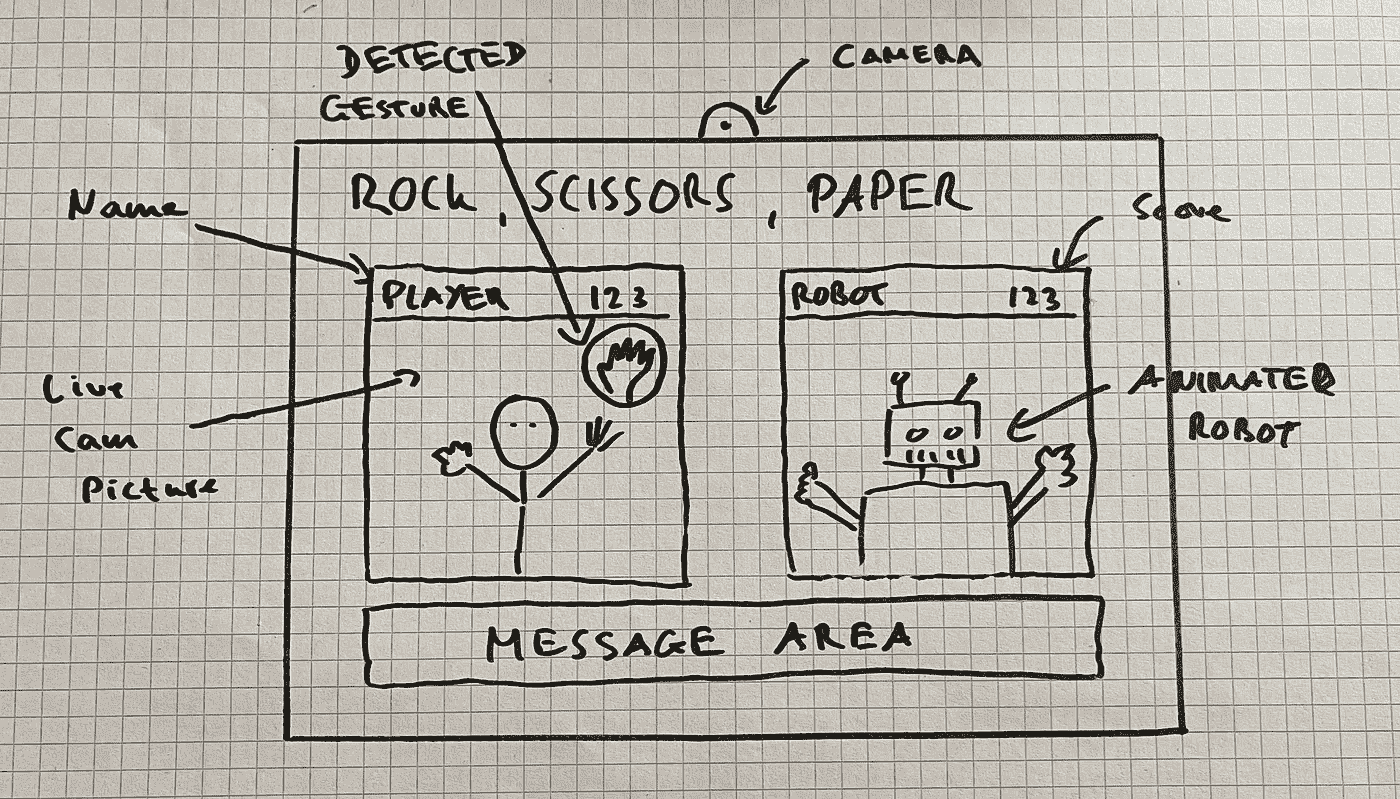 DETECTED
GESTURE
CAMERA
ROCK, SCISSORS, PAPER
Name
Score
PLAYER 123
ROBOT 123
Live
Cam
Picture
ANIMATED
ROBOT
MESSAGE AREA